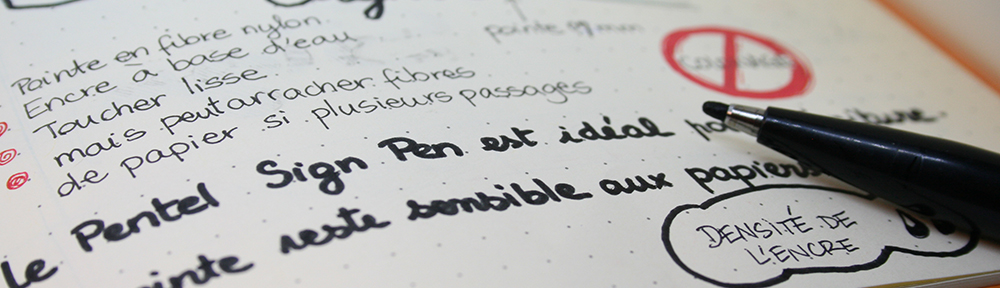 Sign
Pointe en fibre nylon
Encre à base d'eau
Toucher lisse
mais peut arracher fibres
de papier si plusieurs passages
pointe mm
Le Pentel Sign Pen est idéal
reste sensible aux papiers
DENSITÉ DE
L'ENCRE